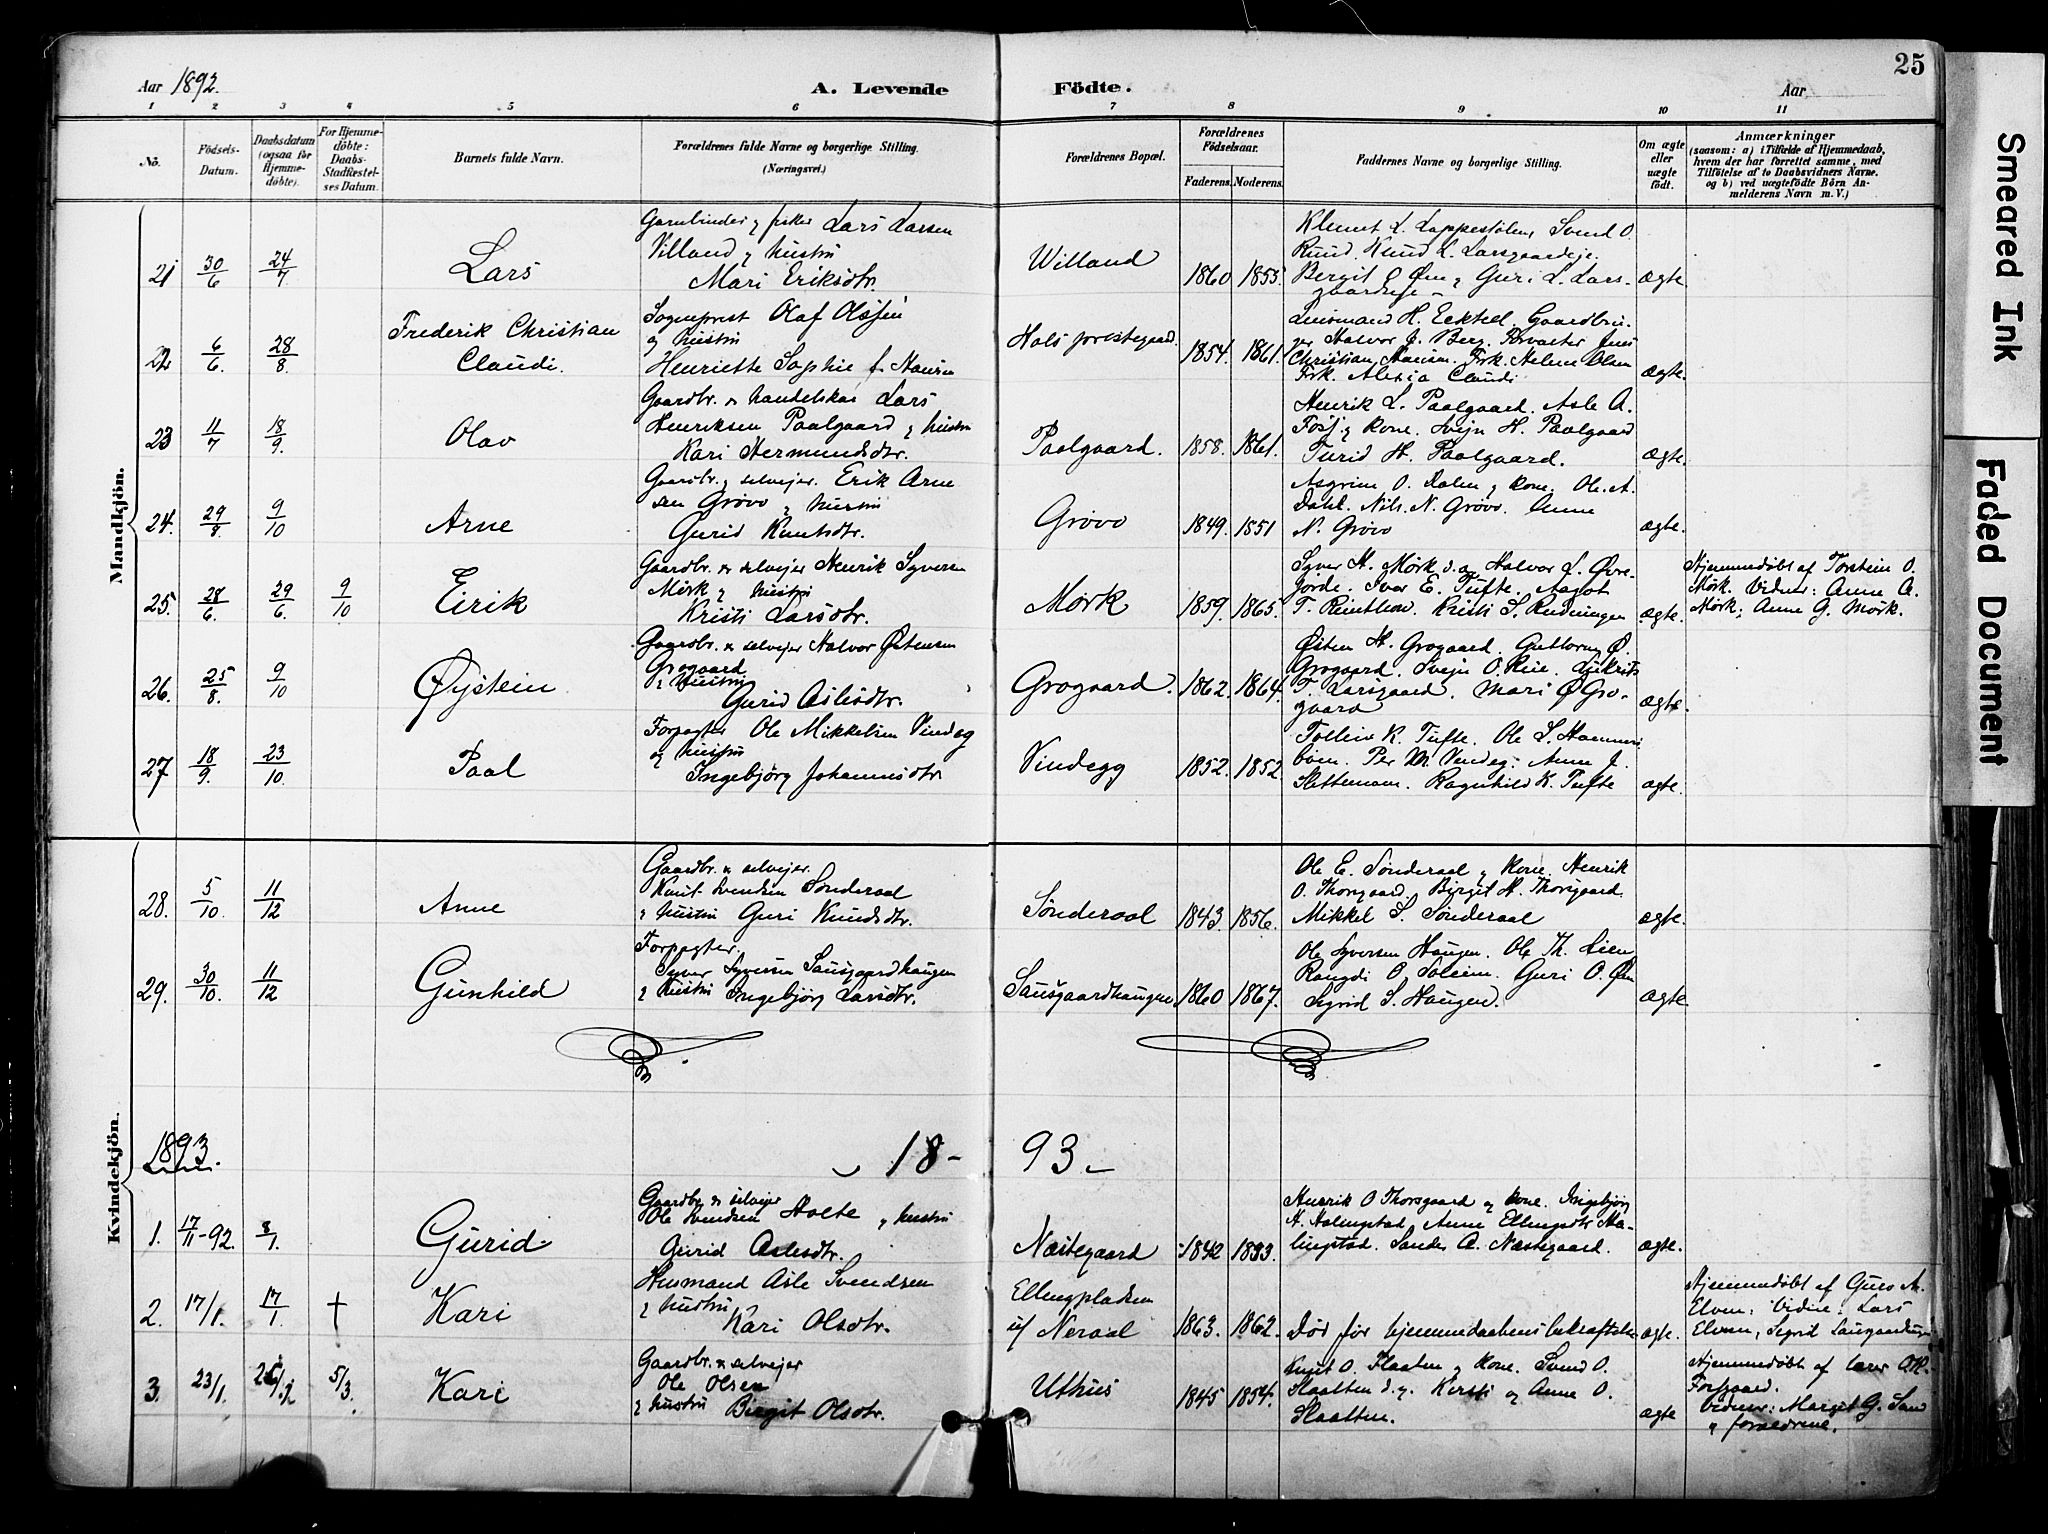 25
Aar 1892.
A. Levende Födte.
Aar
1 2 3 4 5 6 7 8 9 10 11
No.
Födsels-Datum.
Daabsdatum (ogsaa for Hjemme-döbte).
For Hjemme-döbte: Daabs-Stadfæstel-ses Datum.
Barnets fulde Navn.
Forældrenes fulde Navne og borgerlige Stilling. (Næringsvei.)
Forældrenes Bopæl.
Forældrenes Födselsaar.
Faderens. Moderens.
Faddernes Navne og borgerlige Stilling.
Om ægte eller uægte födt.
Anmærkninger
(saasom: a) i Tilfælde af Hjemmedaab,
hvem der har forrettet samme, med
Tilföielse af to Daabsvidners Navne,
og b) ved uægtefödte Börn An-
melderens Navn m.V.)
Mandkjön.
21 30/6 24/7 Lars
Garnbinder og fisker Lars Larsen
Villand og hustru
Mari Eriksdtr.
Willand 1860 1855.
Klemet L. Lappestølen, Svend O.
Ruud, Knud L. Larsgaardeje.
Bergit O. Øen og Guri L. Lars-
gaardseje
ægte
22 6/6. 28/8. Frederik Christian
Claudi.
Sogneprest Olaf Olsen
og hustru
Henriette Sophie f. Hansen
Hols prestegaard 1854. 1861.
Lensmand H. Eckteel. Gaardbru-
ger Halvor J. Berg. Forvalter Jens
Christian Hansen. Frk. Helene Olsen
Frk. Alexia Claudi
ægte.
23 11/7 18/9. Olav
Gaardbr. & handelskar Lars
Henriksen Paalgaard og hustru
Kari Hermundsdtr.
Paalgaard. 1858. 1861.
Henrik L. Paalgaard. Asle A.
Fosj og kone. Svejn H. Paalgaard
Turid H. Paalgaard.
ægte.
24. 29/8. 9/10 Arne
Gaardbr. og selvejer. Erik Arne
sen Grøvo og hustru
Gurid Knutsdtr.
Grøvo 1849. 1851
Asgrim O. Dalen og kone. Ole A.
Dahl. Nils. N. Grøvo. Anne
N. Grøvo
ægte.
25. 28/6. 29/6. 9/10 Eirik
Gaardbr. & selvejer Henrik Syversen
Mørk og hustru
Kristi Larsdtr.
Mørk 1859. 1865.
Syver H. Mørk d.a. Halvor L. Øvre-
gjorde. Iver E. Tufte. Aagot
T. Kristi S. Rudningen
ægte.
Hjemmedøbt af Torstein O.
Mørk. Vidner: Anne A.
Mørk; Anne G. Mørk.
26. 25/8. 9/10 Øystein
Gaardbr. & selvejer Halvor Østensen
Grogaard
og hustru
Gurid Aslesdtr.
Grogaard. 1862. 1864.
Østen H. Grogaard. Guttorm Ø.
Grogaard. Svejn O. Rue.
T. Larsgaard. Mari Ø Gro-
gaard
ægte.
27 18/9. 23/10. Paal
Forpagter Ole Mikkelsen Vindeg
og hustru
Ingebjørg Johannesdtr
Vindegg 1852. 1852.
Tollein K. Tufte. Ole L. Hammers
bøen. Per M. Vindeg. Anne J.
Slettemoen. Ragnhild K. Tufte
ægte.
Kvindekjön.
28. 5/10. 11/12 Anne
Gaardbr. & selvejer.
Knut Svendsen Sønderaal
og hustru Guri Knudsdtr.
Sønderaal 1843. 1856.
Ole E. Sønderaal og kone. Henrik
O. Thorsgaard, Birgit H. Thorsgaard.
Mikkel S. Sønderaal
ægte.
29. 30/10. 11/12 Gunhild
Forpagter.
Syver Syversen Sausgaardhaugen
og hustru Ingebjørg Larsdtr.
Sausgaardhaugen 1860 1867.
Ole Syversen Haugen. Ole Th. Lien
Rangdi O. Soleim. Guri O. Øen
Sigrid S. Haugen.
ægte
1893.
18-93-
1. 17/11-92. 8/1. Gurid
Gaardbr. & selvejer
Ole Svendsen Holte og hustru
Gurid Aslesdtr.
Næstegaard 1842 1853.
Henrik O Thorsgaard og kone. Ingebjørg
H. Holmgstad, Anne Ellingsdtr Ha-
lingstad. Sander A. Næstegaard.
ægte.
2. 17/1. 17/1 † Kari
Husmand Asle Svendsen
og hustru
Kari Olsdtr.
Ellingpladsen
u/ Neraal 1863. 1862.
Død før hjemmedaabens bekræftelse
ægte.
Hjemmedøbt af Guro A.
Elven; Vidne: Lars
Elven, Sigrid
3. 23/1. 26/2 5/3. Kari
Gaardbr. & selvejer
Ole Olsen
og hustru Birgit Olsdtr.
Uthus 1845 1854.
Knut O. Slaatten og kone. Svend O.
Slaatten d.y. Kersti og Anne O.
Slaatten.
ægte
Hjemmedøbt af lærer
Forsgaard.
Vidner: Margit G. Sand
og forældrene.
Smeared Ink
Faded Document